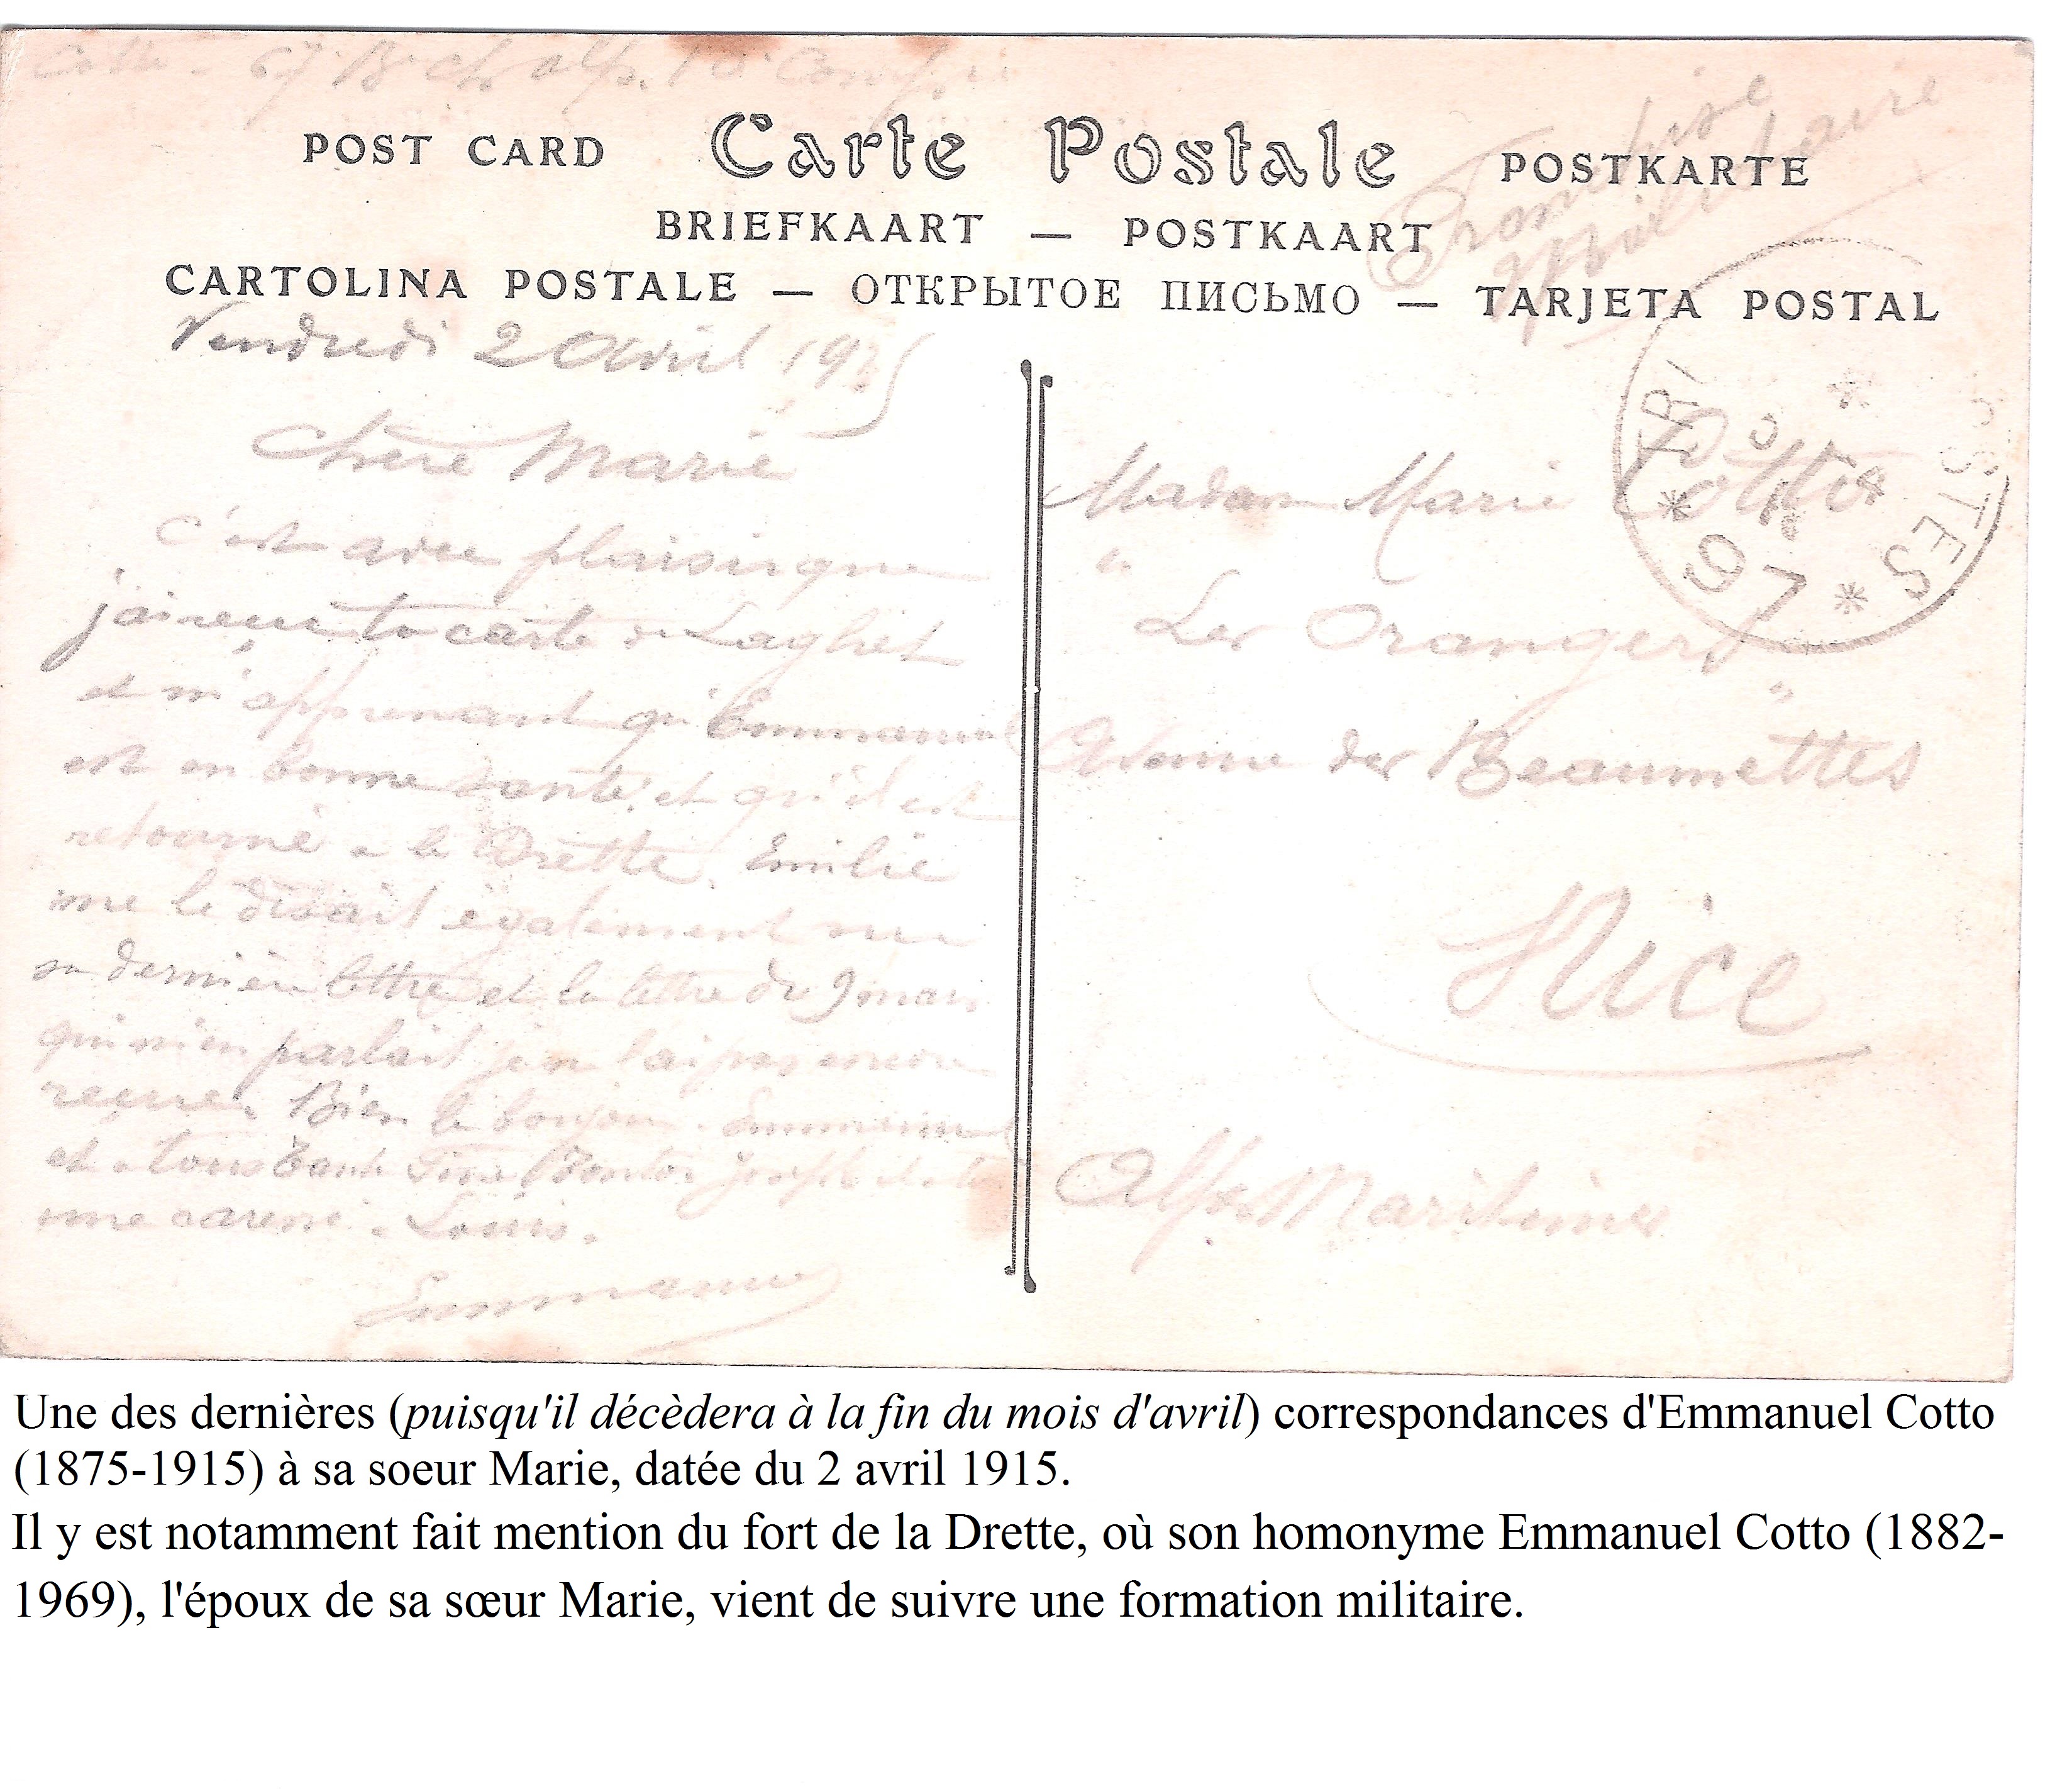 Cotto - 67 B. ch. alp. 10e Compie
Franchise
Militaire
POST CARD Carte Postale POSTKARTE
BRIEFKAART — POSTKAART
CARTOLINA POSTALE — ОТКРЫТОЕ ПИСЬМО — TARJETA POSTAL
Vendredi 2 Avril 1915
Chère Marie
c'est avec plaisir que
j'ai reçu ta carte de Laghet
et m'apprenant qu'Emmanuel
est en bonne santé, et qu'il est
retourné a la Drette. Emilie
me le disait également sur
sa dernière lettre et la lettre du 9 mars
qui m'en parlait je ne l'ai pas encore
reçue. Bien le bonjour Emmanuel
et a tous Tante Joseph et
une caresse a Louis.
Emmanuel
Madame Marie Cotto
"Les Orangers"
Avenue des Beaumettes
Nice
Alpes Maritimes
TRI
POSTES
* 97 *
Une des dernières (puisqu'il décèdera à la fin du mois d'avril) correspondances d'Emmanuel Cotto
(1875-1915) à sa soeur Marie, datée du 2 avril 1915.
Il y est notamment fait mention du fort de la Drette, où son homonyme Emmanuel Cotto (1882-
1969), l'époux de sa sœur Marie, vient de suivre une formation militaire.